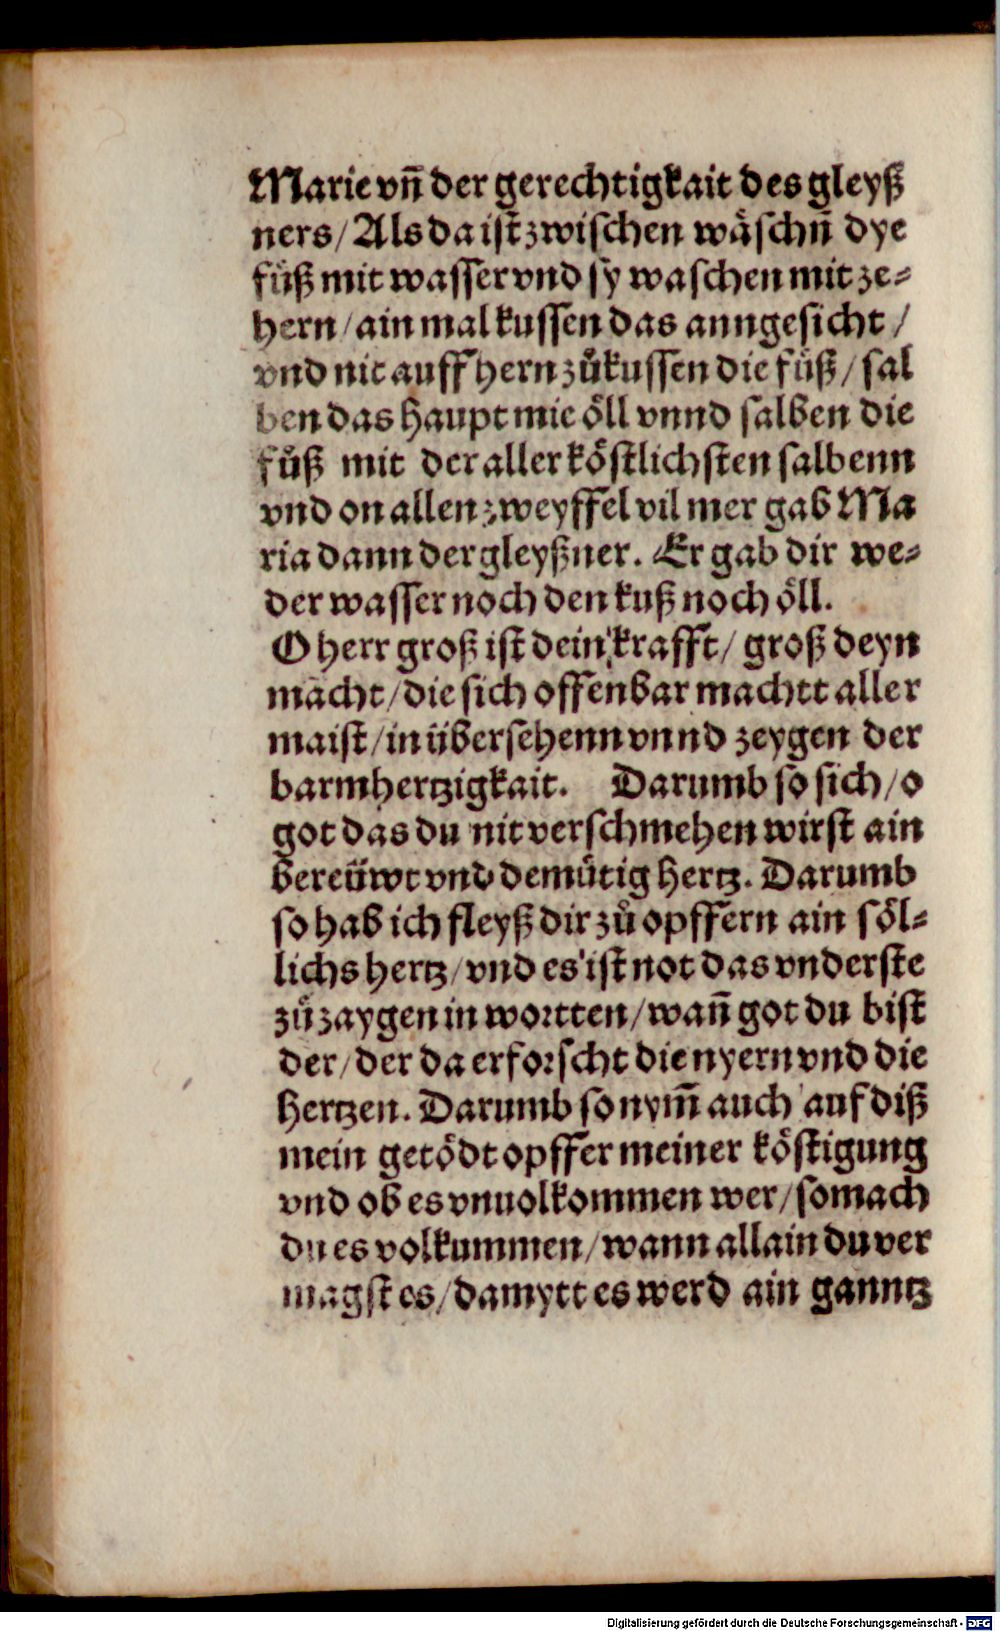 Marie vñ der gerechtigkait des gleyß
ners/ Als da ist zwischen wäschñ dye
füß mit wasser vnd sy waschen mit ze⸗
hern/ ain mal kussen das anngesicht /
vnd nit auff hern zůkussen die füß/ sal
ben das haupt mie öll vnnd salben die
füß mit der aller köstlichsten salbenn
vnd on allen zweyffel vil mer gab Ma
ria dann der gleyßner. Er gab dir we⸗
der wasser noch den kuß noch öll.
O herr groß ist dein krafft/ groß deyn
mächt/ die sich offenbar machtt aller
maist/ in übersehenn vnnd zeygen der
barmhertzigkait. Darumb so sich/ o
got das du nit verschmehen wirst ain
bereüwt vnd demütig hertz. Darumb
so hab ich fleyß dir zů opffern ain söl⸗
lichs hertz/ vnd es ist not das vnderste
zůzaygen in wortten/ wañ got du bist
der/ der da erforscht die nyern vnd die
hertzen. Darumb so nym̃ auch auf diß
mein getödt opffer meiner köstigung
vnd ob es vnuolkommen wer/ so mach
du es volkummen/ wann allain du ver
magst es/ damytt es werd ain ganntz
Digitalisierung gefördert durch die Deutsche Forschungsgemeinschaft - DFG